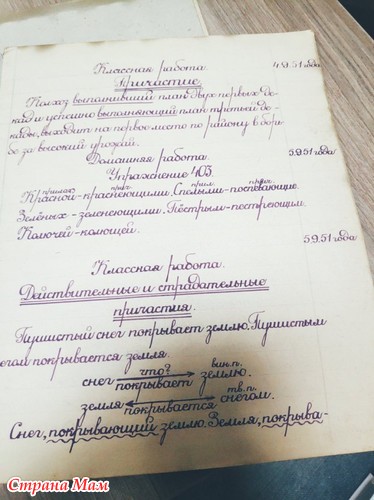 Классная работа. 4.9.51 года
Причастие.
Колхоз выполнивший план двух первых де-
кад и успешно выполняющий план третьей де-
кады, выходит на первое место по району в борь-
бе за высокий урожай.
Домашняя работа. 5.9.51 года
Упражнение 403.
прилаг. прич. прил. прич.
Красной-краснеющими. Спелыми-поспевающие.
Зелёных-зеленеющими. Пёстрым-пестреющим.
Колючей-колющей.
5.9.51 года
Классная работа.
Действительные и страдательные
причастия.
Пушистый снег покрывает землю. Пушистым
снегом покрывается земля.
что? вин.п.
снег покрывает землю.
тв.п.
земля покрывается снегом.
Снег, покрывающий землю. Земля, покрыва-
Страна Мам